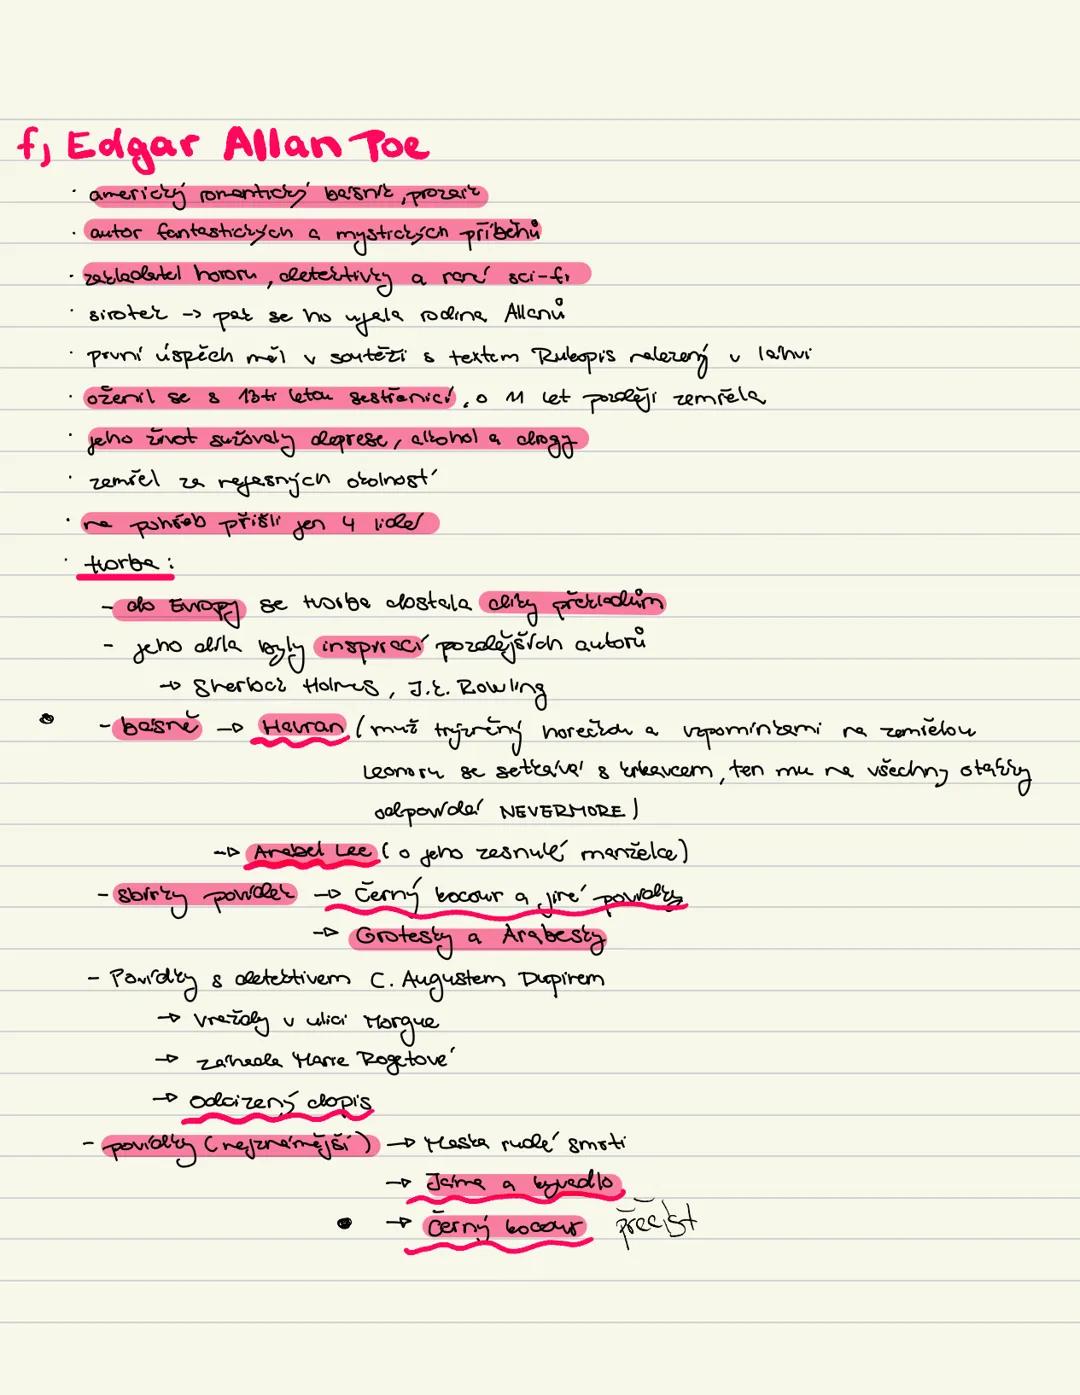 f, Edgar Allan Poe
· americký romantický básník, prozaik
· autor fantastických a mystických příběhů
· zakladatel hororu, detektivky a rané sci-fi
· sirotek -> pak se ho ujala rodina Allanů
· první úspěch měl v soutěži s textem Rukopis nalezený v lahvi
· oženil se s 13ti letou sestřenicí, o 11 let později zemřela
· jeho život sužovaly deprese, alkohol a drogy
· zemřel za nejasných okolností
· na pohřeb přišli jen 4 lidé
· tvorba:
- do Evropy se tvorba dostala díky překladům
- jeho díla byly inspirací pozdějších autorů
-> Sherlock Holmes, J.K. Rowling
• - básně -> Havran (muž trýzněný horečkou a vzpomínkami na zemřelou
Leonoru se setkává s krkavcem, ten mu na všechny otázky
odpovídá NEVERMORE)
-> Anabel Lee (o jeho zesnulé manželce)
- sbírky povídek -> Černý kocour a jiné povídky
-> Grotesky a Arabesky
- Povídky s detektivem C. Augustem Dupinem
-> Vraždy v ulici Morgue
-> záhada Marie Rogetové
-> Odcizený dopis
- povídky (nejznámější) -> Maska rudé smrti
-> Jáma a kyvadlo
• -> Černý kocour přečíst